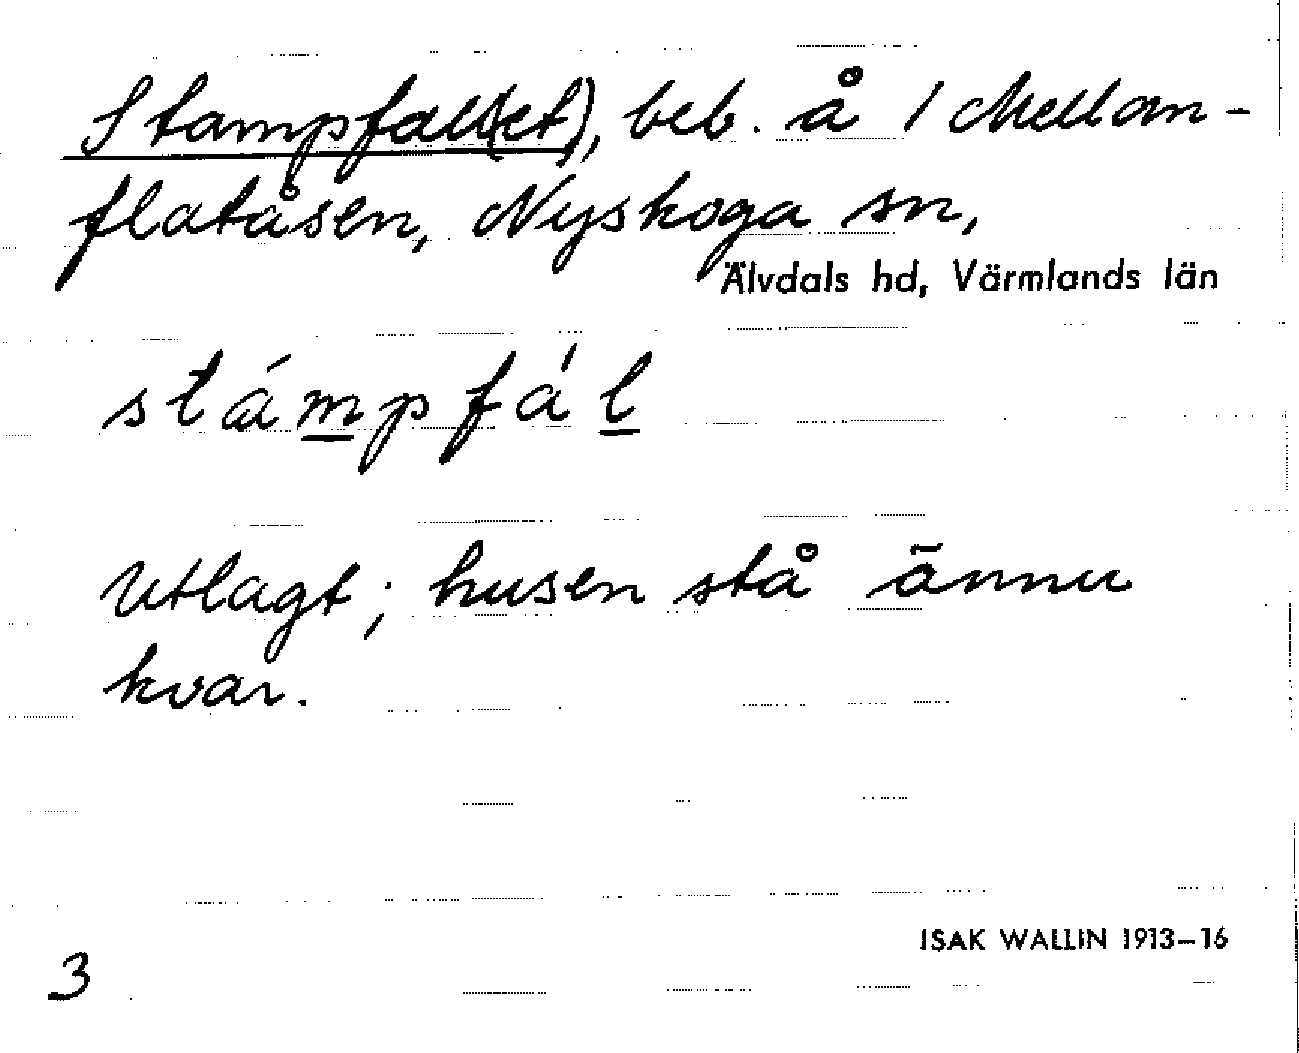 Stampfall(et), beb. å 1 Mellan-
flatåsen, Nyskoga sn,
Älvdals hd, Värmlands län
stámpfál
Utlagt; husen stå ännu
kvar.
ISAK WALLIN 1913–16
3